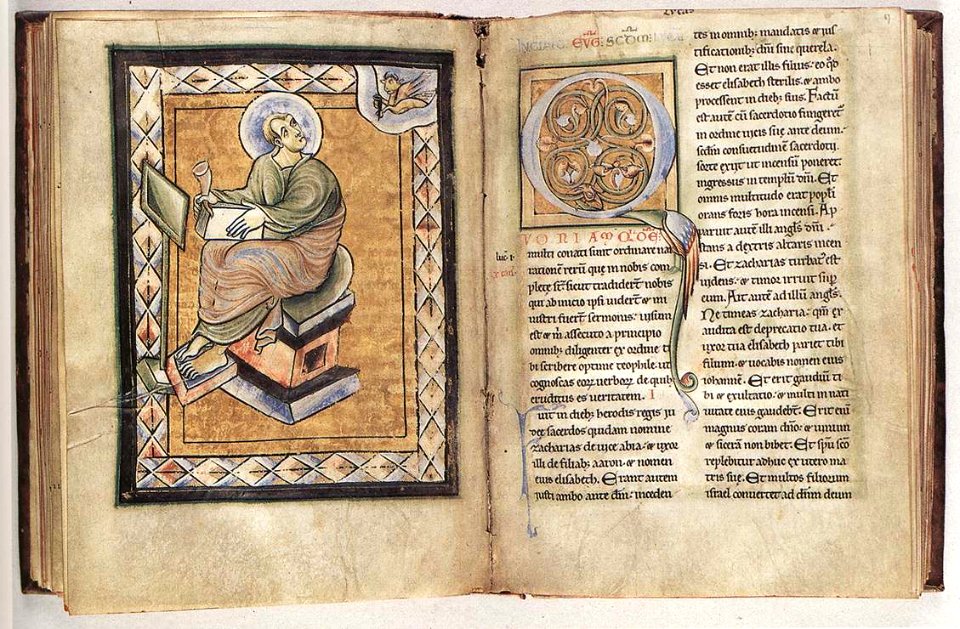 lucas
INCIPIT EVG SCDM LUCĀ
Q
UONIAM QUIDE
multi conati sunt ordinare nar
rationē rerū que in nobis com
plete st sicut tradiderūt nobis
qui ab inicio ipsi viderūt & mi
nistri fuerūt sermonis uisum
est & m assecuto a principio
omnib; diligenter ex ordine ti
bi scribere optime teophile ut
cognoscas eor uerbor de quib;
eruditus es ueritatem.
uit in dieb; herodis regis iu
dee sacerdos quidam nomine
zacharias de uice abia. & uxor
illi de filiab; aaron. & nomen
eius elisabeth. Erant autem
iusti ambo ante dm. inceden
tes in omnib; mandatis & ius
tificationib; dni sine querela.
Et non erat illis filius. eo qd
esset elisabeth sterilis. & ambo
processissent in dieb; suis. Factū
est autē cū sacerdotio fungeret
in ordine uicis sue ante deum.
scdm consuetudinē sacerdotii
sorte exiit ut incensū poneret.
ingressus in templū dni. Et
omnis multitudo erat popli
orans foris hora incensi. Ap
paruit autē illi angls dni.
stans a dextris altaris incen
si. Et zacharias turbat est
uidens. & timor irruit sup
eum. Ait autē ad illū angls.
Ne timeas zacharia. qm ex
audita est deprecatio tua. et
uxor tua elisabeth pariet tibi
filium. & uocabis nomen eius
iohannē. Et erit gaudiū ti
bi & exultatio. & multi in nati
uitate eius gaudebt. Erit enī
magnus coram dno. & uinum
& sicerā non bibet. Et spu sco
replebitur adhuc ex utero ma
tris sue. Et multos filiorum
israel conuertet ad dnm deum